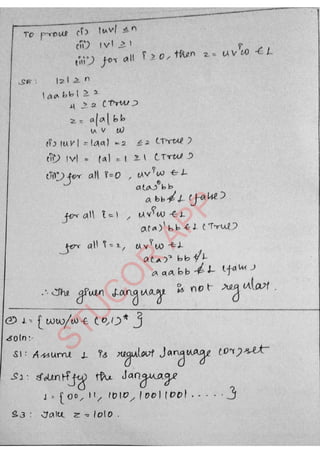 To prove (i) |uv| ≤ n
(ii) |v| ≥ 1
(iii) for all i ≥ 0, then z = uvⁱw ∈ L
|z| ≥ n
|aabb| ≥ 2
4 ≥ 2 (True)
z = a|a|bb
u v w
(i) |uv| = |aa| = 2 ≤ 2 (True)
(ii) |v| = |a| = 1 ≥ 1 (True)
(iii) for all i=0, uvⁱw ∈ L
a(a)⁰bb
abb ∉ L (false)
for all i=1, uvⁱw ∈ L
a(a)¹bb ∈ L (True)
for all i=2, uvⁱw ∈ L
a(a)² bb ∉ L
aaabb ∉ L (false)
∴ The given Language is not regular.
② L = {ww/w ∈ (0,1)* }
Soln:-
S1: Assume L is regular language (or) set
S2: Identify the language
L = {00, 11, 1010, 10011001.....}
S3: Take z = 1010.
STUCOR APP